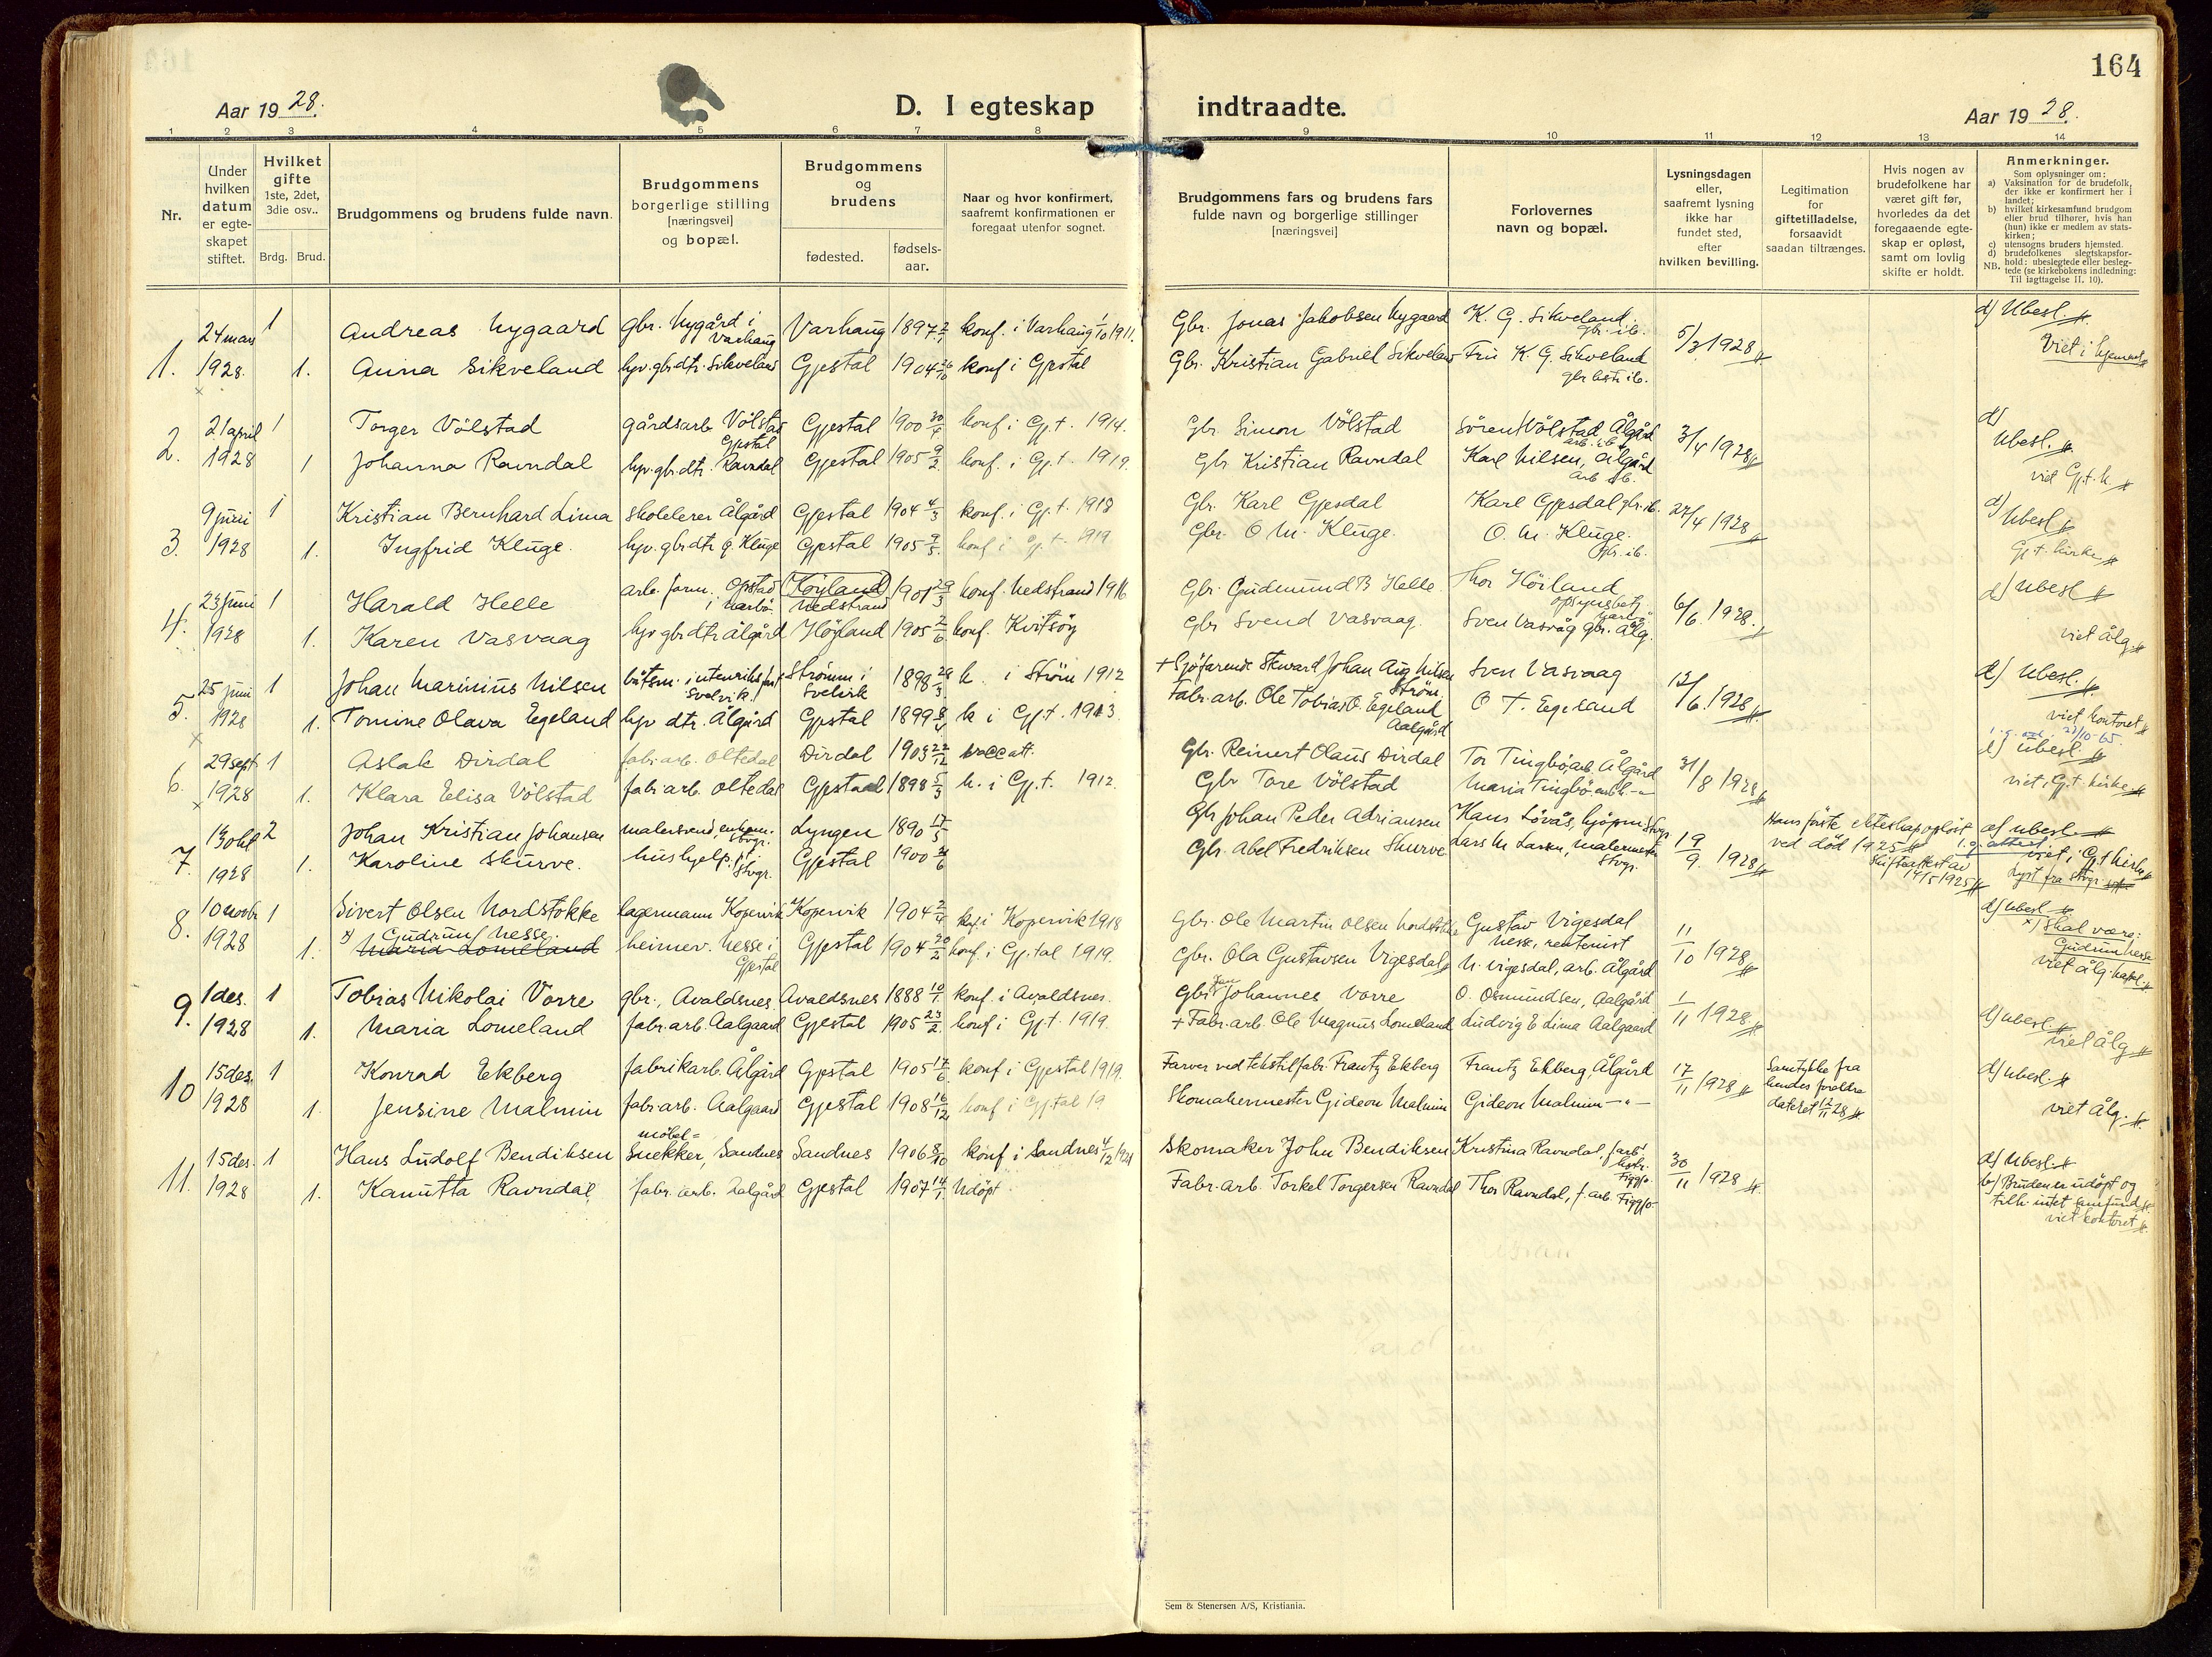 164
Aar 1928.
D. I egteskap indtraadte.
Aar 1928.
1 2 3 4 5 6 7 8 9 10 11 12 13 14
Nr.
Under hvilken datum er egteskapet stiftet.
Hvilket gifte 1ste, 2det, 3die osv..
Brdg. Brud.
Brudgommens og brudens fulde navn.
Brudgommens borgerlige stilling [næringsvei] og bopæl.
Brudgommens og brudens
fødested. fødselsaar.
Naar og hvor konfirmert, saafremt konfirmationen er foregaat utenfor sognet.
Brudgommens fars og brudens fars fulde navn og borgerlige stillinger [næringsvei]
Forlovernes navn og bopæl.
Lysningsdagen eller, saafremt lysning ikke har fundet sted, efter hvilken bevilling.
Legitimation for giftetilladelse, forsaavidt saadan tiltrænges.
Hvis nogen av brudefolkene har været gift før, hvorledes da det foregaaende egteskap er opløst, samt om lovlig skifte er holdt.
Anmerkninger.
Som oplysninger om:
a) Vaksination for de brudefolk, der ikke er konfirmert her i landet;
b) hvilket kirkesamfund brudgom eller brud tilhører, hvis han (hun) ikke er medlem av statskirken;
c) utensogns bruders hjemsted.
d) brudefolkenes slegtskapsforhold: ubeslegtede eller beslegtede (se kirkebokens indledning: Til iagttagelse II. 10).
NB.
1. 24 mars 1 Andreas Nygaard gbr. Nygård i Varhaug Varhaug 1897 konf. i Varhaug 1/10 1911. Gbr. Jonas Jakobsen Nygaard K. G. Sikveland gbr. ib. 5/3 1928 d) Ubesl.
1928. 1. Anna Sikveland hjv. gbrdtr. Sikveland Gjestal 1904 konf i Gjestal Gbr. Kristian Gabriel Sikveland Fru K. G. Sikveland gbr hstr ib. Viet i hjemmet
2. 21 april 1 Torger Völstad gårdsarb Völstad Gjestal Gjestal 1900 30/4 konf i Gj.t. 1914. Gbr. Simon Völstad Sören Völstad Ålgård arb. ib 3/4 1928 d) Ubesl.
1928 1 Johanna Ravndal hjv. gbrdtr. Ravndal Gjestal 1905 9/2 konf. i Gj.t. 1919. Gbr Kristian Ravndal Karl Nilsen, Ålgård arb ib. viet Gj.t. k
3. 9 juni 1 Kristian Bernhard Lima Skolelerer Ålgård Gjestal 1904 4/3 konf. i Gj.t. 1918 Gbr. Karl Gjesdal Karl Gjesdal gbr. ib. 27/4 1928 d) Ubesl
1928 1. Ingfrid Kluge. hjv. gbrdtr g. Kluge Gjestal 1905 konf i Gj.t. 1919 Gbr. O M. Kluge. O. M. Kluge. gbr. ib. Gj.t. kirke
4. 23 juni 1 Harald Helle arb. form. Opstad i Nærbö. Höyland Nedstrand 1901 29/3 konf. Nedstrand 1916 Gbr. Gudmund B Helle. Thor Höiland opsynsbetj 6/6. 1928. d) Ubesl
1928 1. Karen Vasvaag hjv gbrdtr Ålgård Höyland 1905 2/6 konf. Kvitsöy Gbr Svend Vasvaag. Sven Vasvåg gbr. Ålg. viet Ålg
5. 25 juni 1 Johan Marinius Nilsen Svelvik. Strømm i Svelvik 1898 28/3 k. i Ström 1912 + Sjöfarende Steward Johan Aug Nilsen Ström. Sven Vasvaag 12/6. 1928 d) Ubesl.
1928 1. Tomine Olava Egeland hjv dtr. Ålgård Gjestal 1899 k i Gj.t. 1913. Fabr. arb. Ole Tobias O. Egeland Aalgård O T. Egeland viet kontoret
6. 29 sept 1 Aslak Dirdal fabr. arb. Oltedal Dirdal 1903 22/12 vacc att. Gbr. Reinert Olaus Dirdal Tor Tingbö, arb. Ålgård 31/8 1928 d) ubesl.
1928 1. Klara Elisa Völstad fabr arb. Oltedal Gjestaal 1898 5/3 k. i Gj.t. 1912. Gbr Tore Völstad Maria Tingbö viet i Gj.t. kirke
7. 13 okt 2 Johan Kristian Johansen malersvend, enkem. Stvgr. Lyngen 1890 17/5 Gbr Johan Peder Adriansen Hans Lövås, kjöpm Stvgr. 19/9. 1928 Hans förste ekteskap oplöst ved död 1925 Skifteattest av 14/5 1925 d) ubesl.
1928 1. Karoline Skurve. hushjelp. Stvgr. Gjestal 1900 Gbr. Abel Fredriksen Skurve Lars M Larsen, malermester Stvgr. viet i Gj.t kirke Lyst fra Stvgr.
8. 10 novbr 1 Sivert Olsen Nordstokke lagermann Kopervik Kopervik 1904 konf. i Kopervik 1918 Gbr. Ole Martin Olsen Nordstokke Gustav Vigesdal Nesse, rentenist 11/10 1928 d) ubesl
1928 1. x) Gudrun Nesse. Maria Lomeland heimev. Nesse i Gjestal Gjestal 1904 20/2 konf. i Gj.tal 1919. Gbr. Ola Gustavsen Vigesdal N. Vigesdal, arb. Ålgård x) Skal være: Gudrun Nesse viet Ålg. kapel.
9. 1 des. 1 Tobias Nikolai Vorre gbr., Avaldsnes. Avaldsnes 1888 10/1 konf. i Avaldsnes. Gbr. Johannes Vorre O. Osmundsen, Aalgård 1/11 1928 d) ubesl.
1928 1. Maria Lomeland fabr. arb. Aalgaard Gjestal 1905 23/2 konf i Gj.t. 1919. + Fabr. arb. Ole Magnus Lomeland Ludvig E Lima Aalgaard viet Ålg
10 15 des. 1 Konrad Ekberg fabrikarb. Ålgård Gjestal 1905 17/6 konf i Gjestal 1919. Farver ved tekstilfabr. Frantz Ekberg Frantz Ekberg, Ålgård 17/11 1928 Samtykke fra hendes foreldre dateret 12/11 28 d) ubesl.
1928 1. Jensine Malmin fabr arb. Aalgaard Gjestal 1908 16/12 konf i Gj.tal 19 Skomakermester Gideon Malmin Gideon Malmin —"— viet Ålg.
11. 15 des. 1 Hans Ludolf Bendiksen möbel= Snekker, Sandnes Sandnes 1906 8/10 konf i Sandnes 4/12 1921 Skomaker John Bendiksen Kristina Ravndal, f arb. hstr. Figgjo. 30/11 1928 d) Ubesl.
1928 1. Kanutta Ravndal fabr. arb. Aalgård Gjestal 1907 14/1 Udöpt Fabr. arb. Torkel Torgersen Ravndal Thor Ravndal, f. arb Figgjo b) Bruden er udöpt og tilh. intet samfund viet kontoret
Sem & Stenersen A/S, Kristiania.